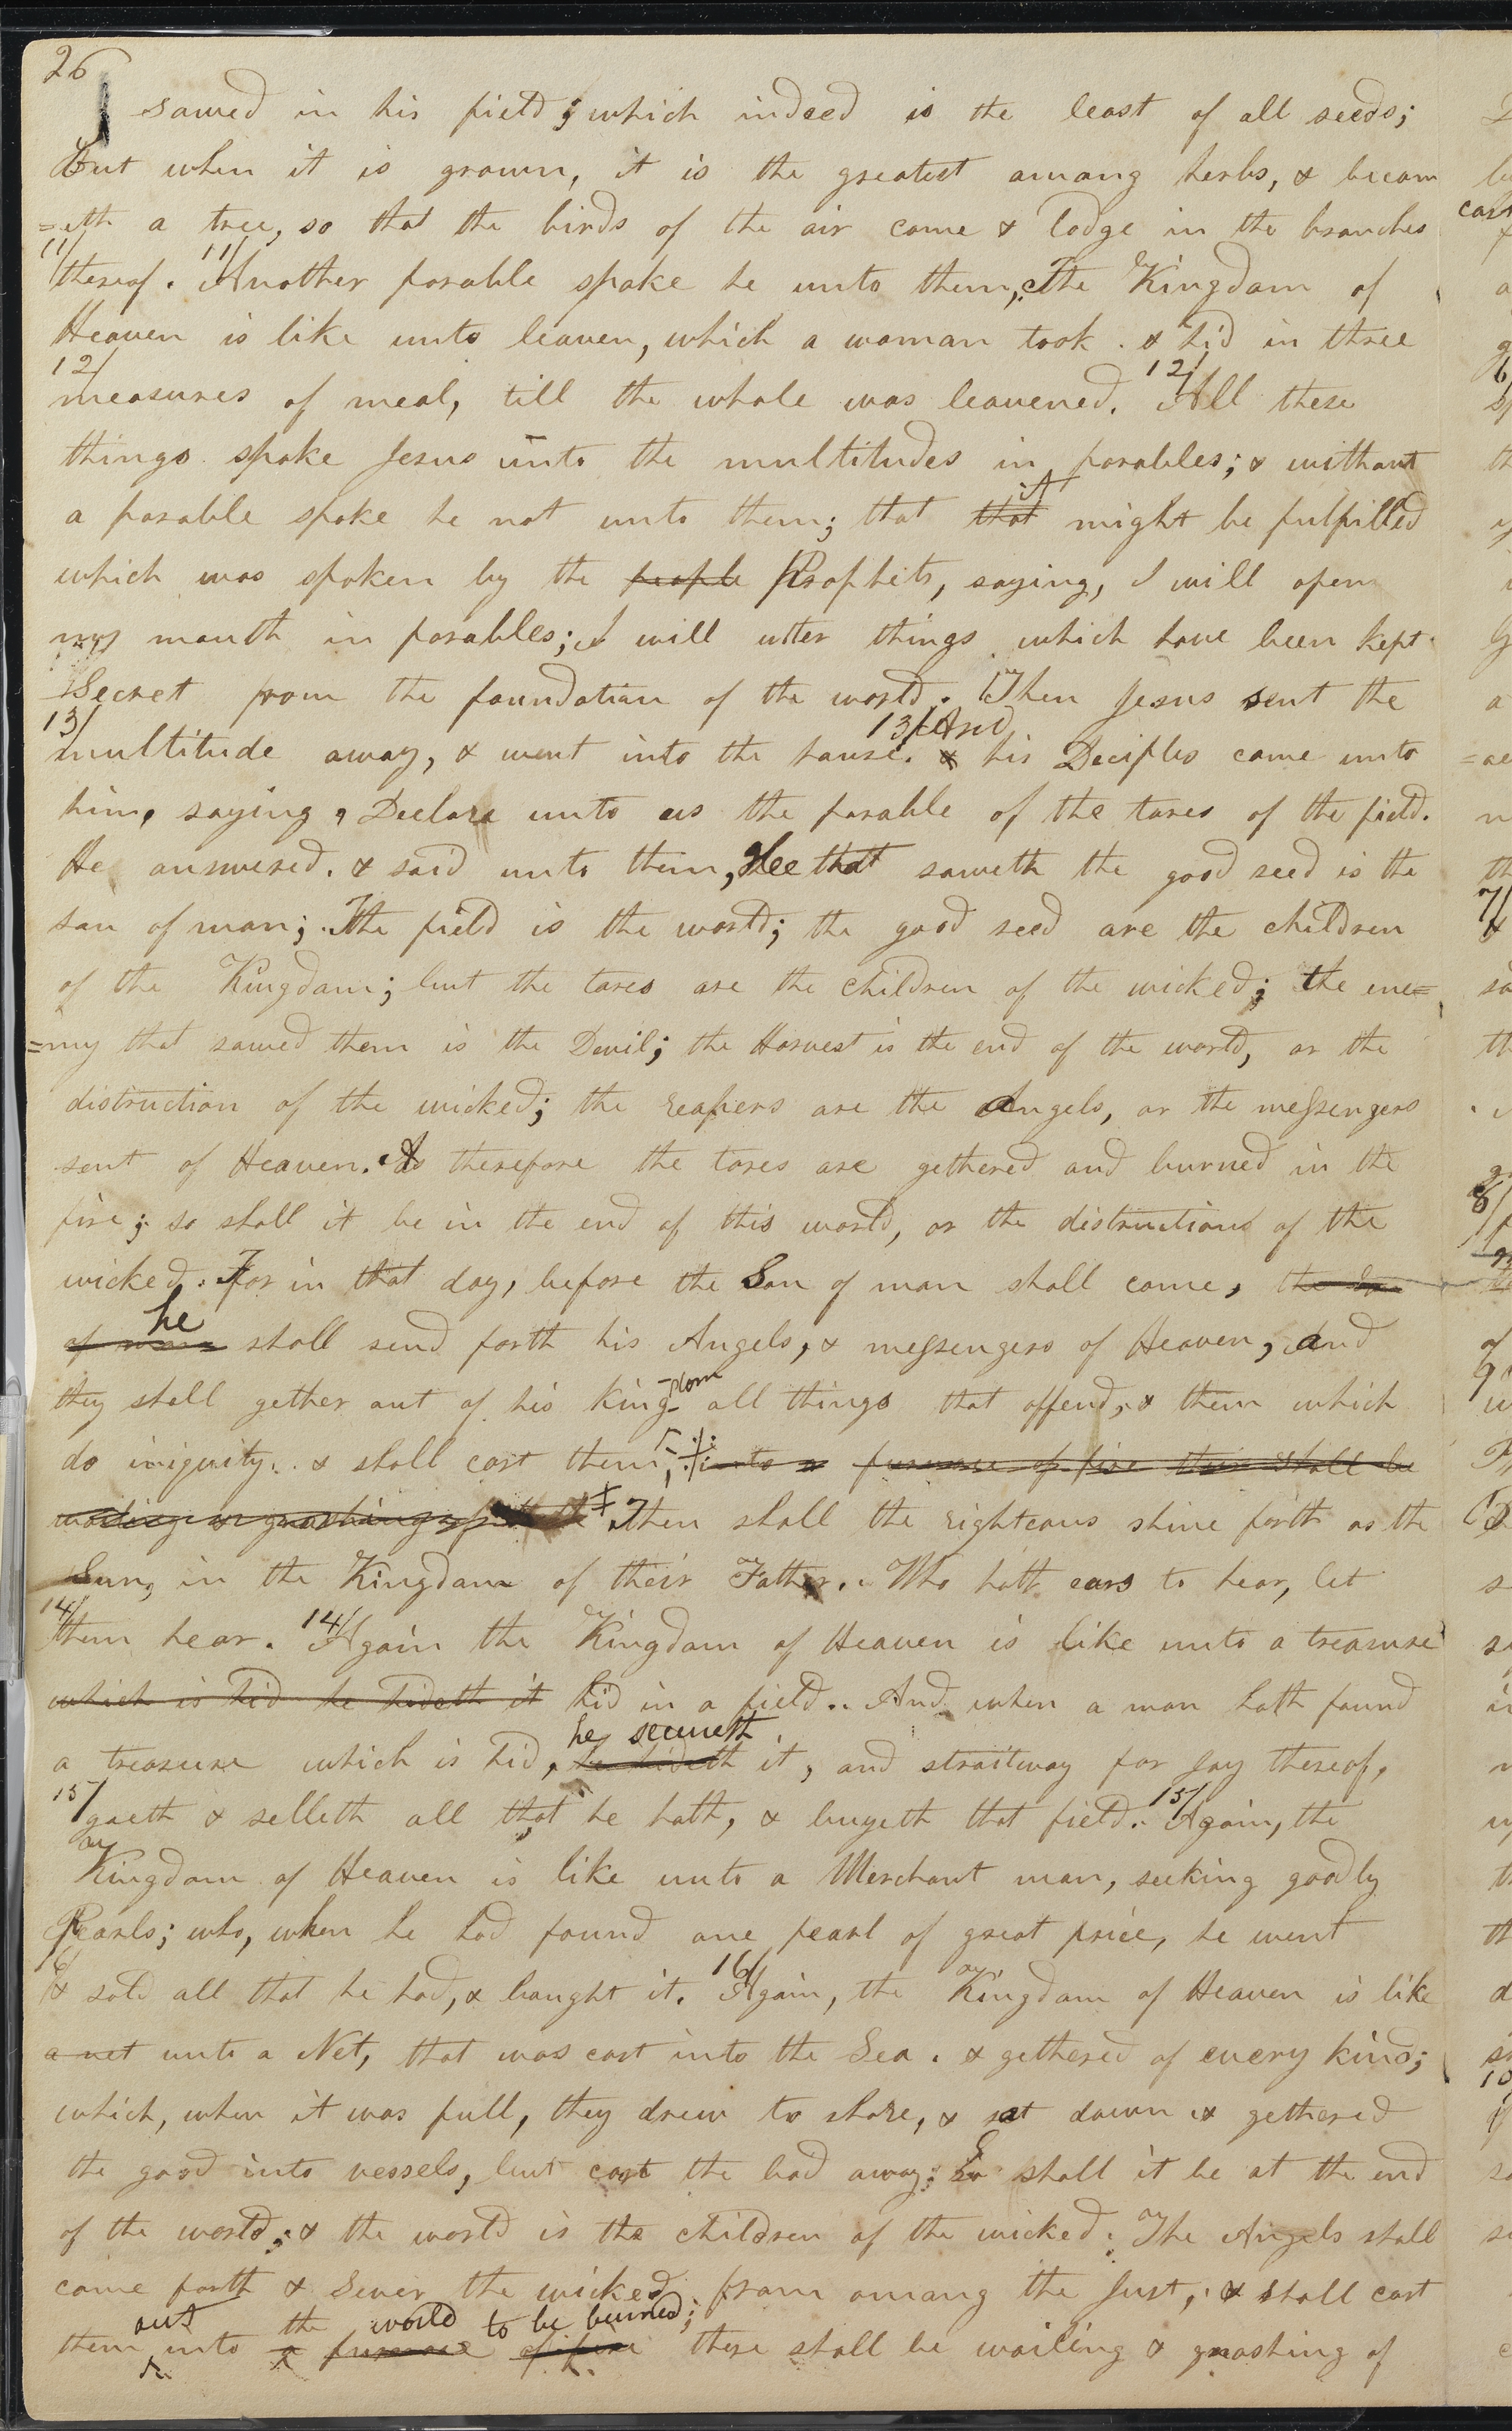 26
sowed in his field; which indeed is the least of all seeds;
but when it is grown, it is the greatest among herbs, & becom
=eth a tree, so that the birds of the air come & lodge in the branches
11/ 11/
thereof. Another parable spake he unto them, The Kingdom of
Heaven is like unto leaven, which a woman took. & hid in three
12/ 12/
measures of meal, till the whole was leavened. All these
things spake Jesus unto the multitudes in parables; & without
it
a parable spoke he not unto them; that that might be fulfilled
which was spoken by the people Prophets, saying, I will open
my mouth in parables; I will utter things which have been kept
Secret from the foundation of the world. Then Jesus sent the
13/ 13/ And
multitude away, & went into the house. & his Deciples came unto
him, saying, Declare unto us the parable of the tares of the field.
He answered. & said unto them, Hee that soweth the good seed is the
son of man; The field is the world; the good seed are the children
of the Kingdom; but the tares are the children of the wicked; the ene=
=my that sowed them is the Devil; the Harvest is the end of the world, or the
distruction of the wicked; the reapers are the Angels, or the messengers
sent of Heaven. As therefore the tares are gethered and burned in the
fire; so shall it be in the end of this world, or the distructions of the
wicked. For in that day, before the Son of man shall come, the Son
he
of man shall send forth his Angels, & messengers of Heaven, And
-dom
they shall gether out of his king- all things that offend, & them which
do iniquity. & shall cast them, into a furnace of fire their shall be
wailing & gnashing of teeth Then shall the righteous shine forth as the
Sun, in the Kingdom of their Father. Who hath ears to hear, let
14/ 14/
them hear. Again the Kingdom of Heaven is like unto a treasure
which is hid he hideth it hid in a field. And when a man hath found
he secureth
a treasure which is hid, he hideth it, and straitway for Joy thereof,
15/ 15/
goeth & selleth all that he hath, & buyeth that field. Again, the
Kingdom of Heaven is like unto a Merchant man, seeking goodly
Pearls; who, when he had found one pearl of great price, he went
16/ 16/
& sold all that he had, & bought it. Again, the Kingdom of Heaven is like
a net unto a Net, that was cast into the Sea. & gethered of every kind;
which, when it was full, they drew to shore, & sat down & gethered
the good into vessels, but cast the bad away; So shall it be at the end
of the world; & the world is the children of the wicked. The Angels shall
come forth & Sever the wicked from among the Just, & shall cast
out the world to be burned;
them into a furnace of fire there shall be wailing & gnashing of